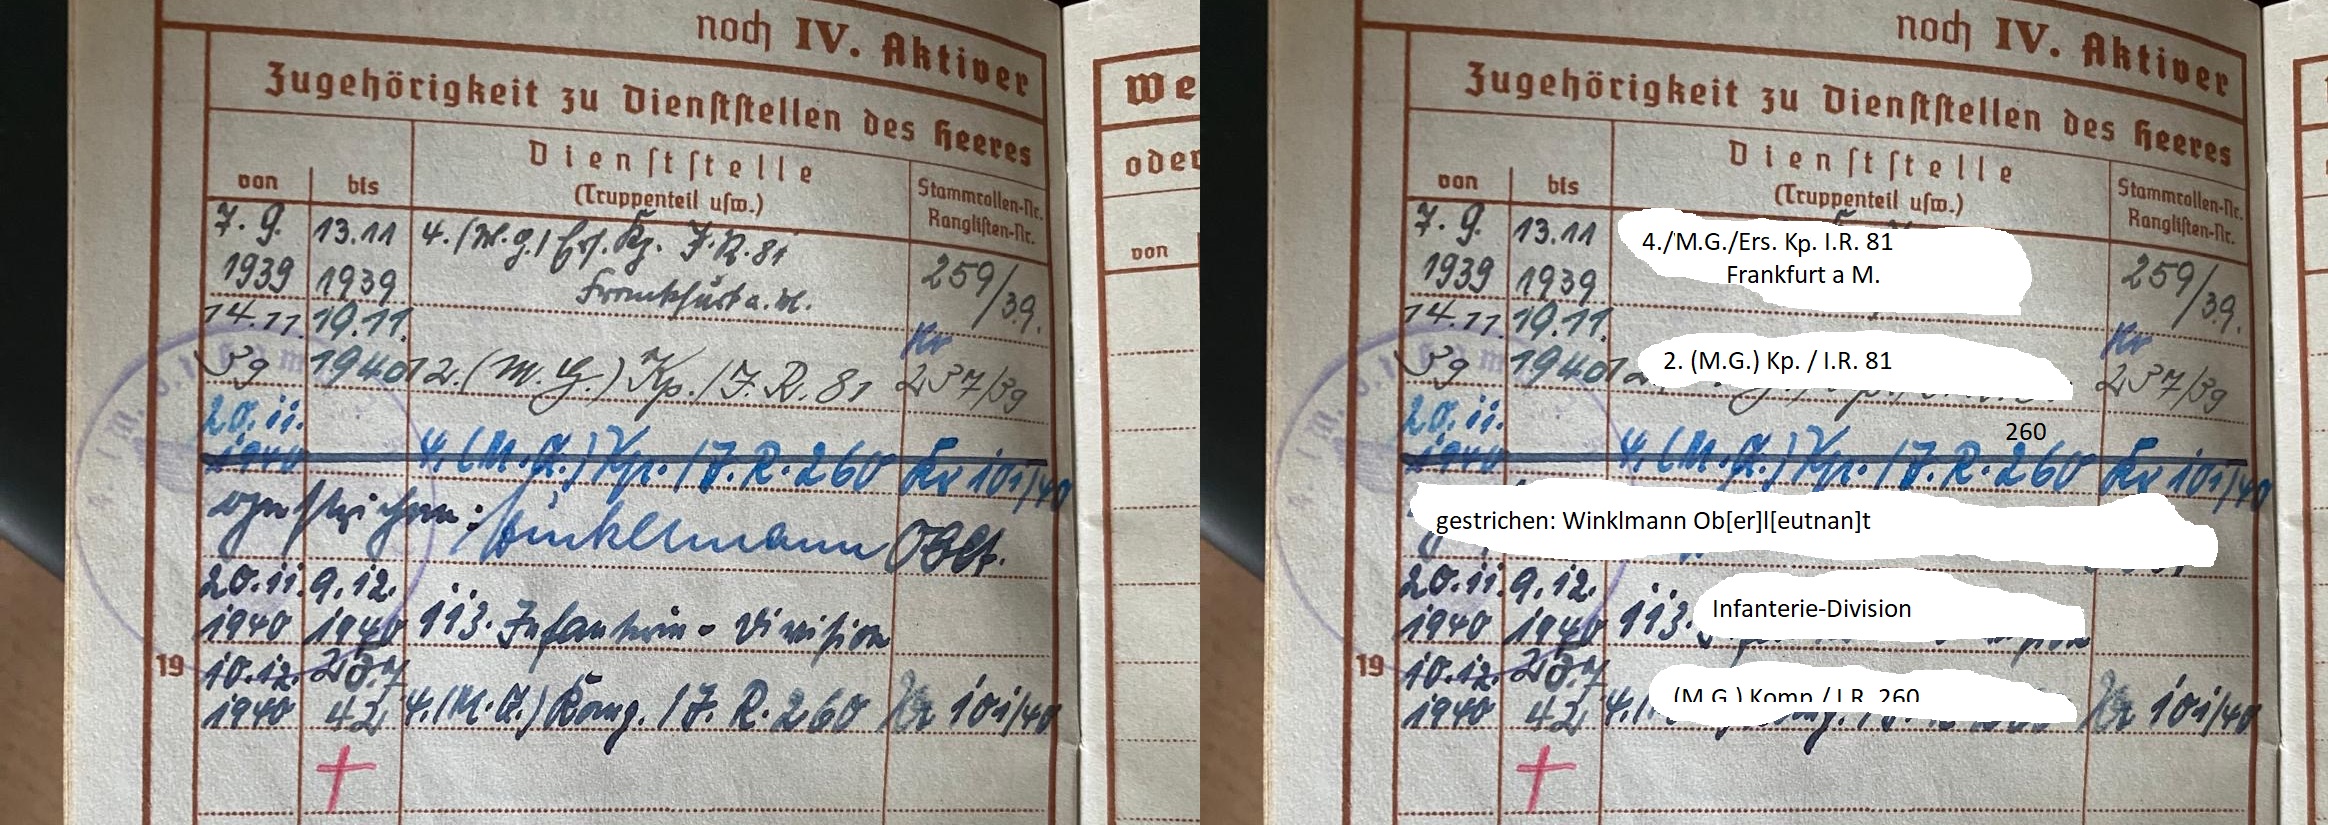 noch IV. Aktiver
Zugehörigkeit zu Dienststellen des Heeres
von
bis
Dienststelle
(Truppenteil usw.)
Stammrollen-Nr.
Ranglisten-Nr.
7. 9.
1939
13.11
1939
4. (M.G.) Ers. Kp. I.R. 81
Frankfurt a. M.
259/39.
14.11.
39
19.11.
1940
12. (M.G.) Kp. / I.R. 81
Kr
237/39
20.11.
1940
4. (M.G.) Kp. / I.R. 260
Kr 101/40
gestrichen: Winklmann Oblt.
20.11.
1940
9.12.
1940
113. Infanterie-Division
19
10.12.
1940
25.7
42
4. (M.G.) Komp. / I.R. 260
Kr 101/40
We
oder
von
noch IV. Aktiver
Zugehörigkeit zu Dienststellen des Heeres
von
bis
Dienststelle
(Truppenteil usw.)
Stammrollen-Nr.
Ranglisten-Nr.
7. 9.
1939
13.11
1939
4./M.G./Ers. Kp. I.R. 81
Frankfurt a M.
259/39.
14.11.
39
19.11.
1940
2. (M.G.) Kp. / I.R. 81
Kr
237/39
260
20.11.
1940
4. (M.G.) Kp. / I.R. 260
Kr 101/40
gestrichen: Winklmann Ob[er]l[eutnan]t
20.11.
1940
9.12.
1940
113.
Infanterie-Division
19
10.12.
1940
25.7
42
4.
(M.G.) Komp / I.R. 260
Kr 101/40